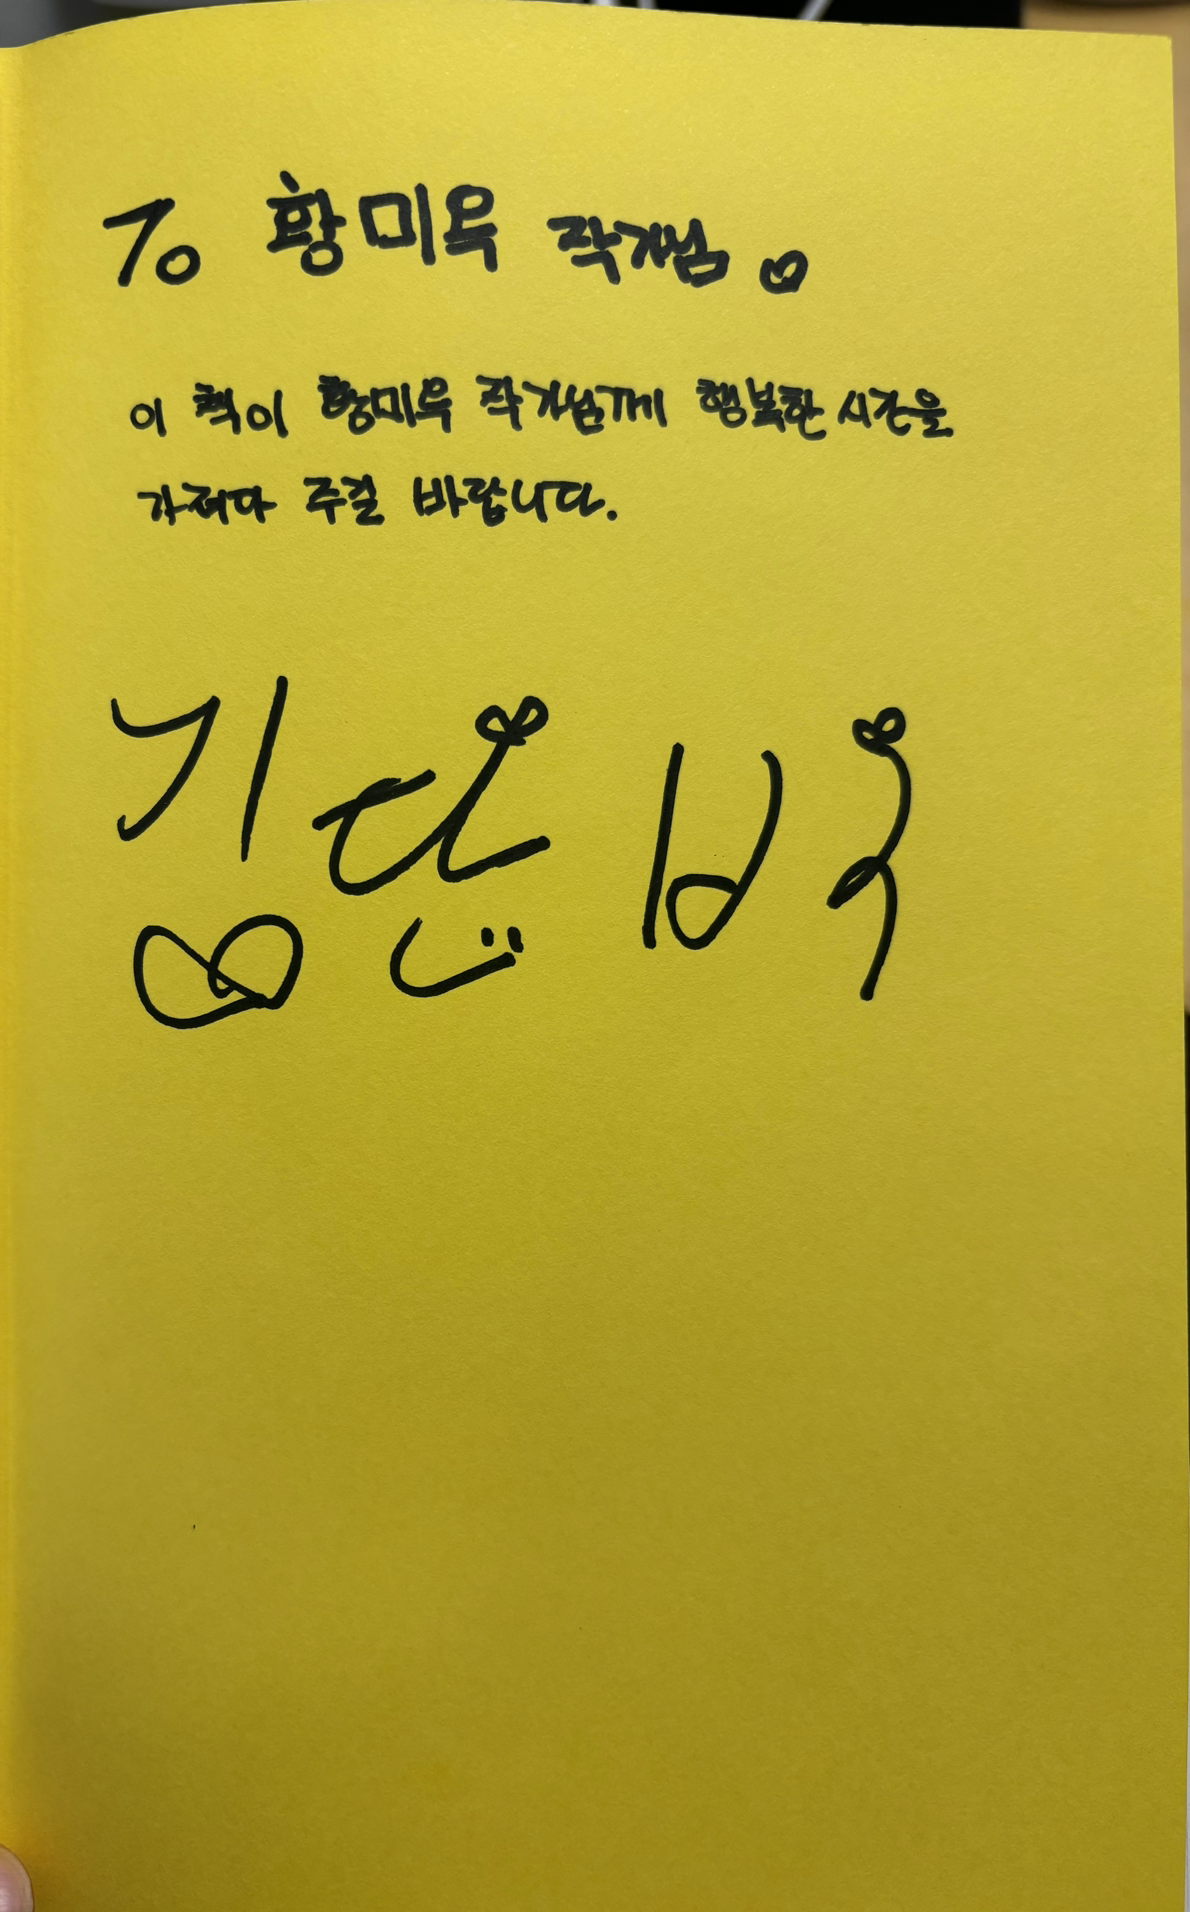 To 황미욱 작가님
이 책이 황미욱 작가님께 행복한 시간을
가져다 주길 바랍니다.
김단